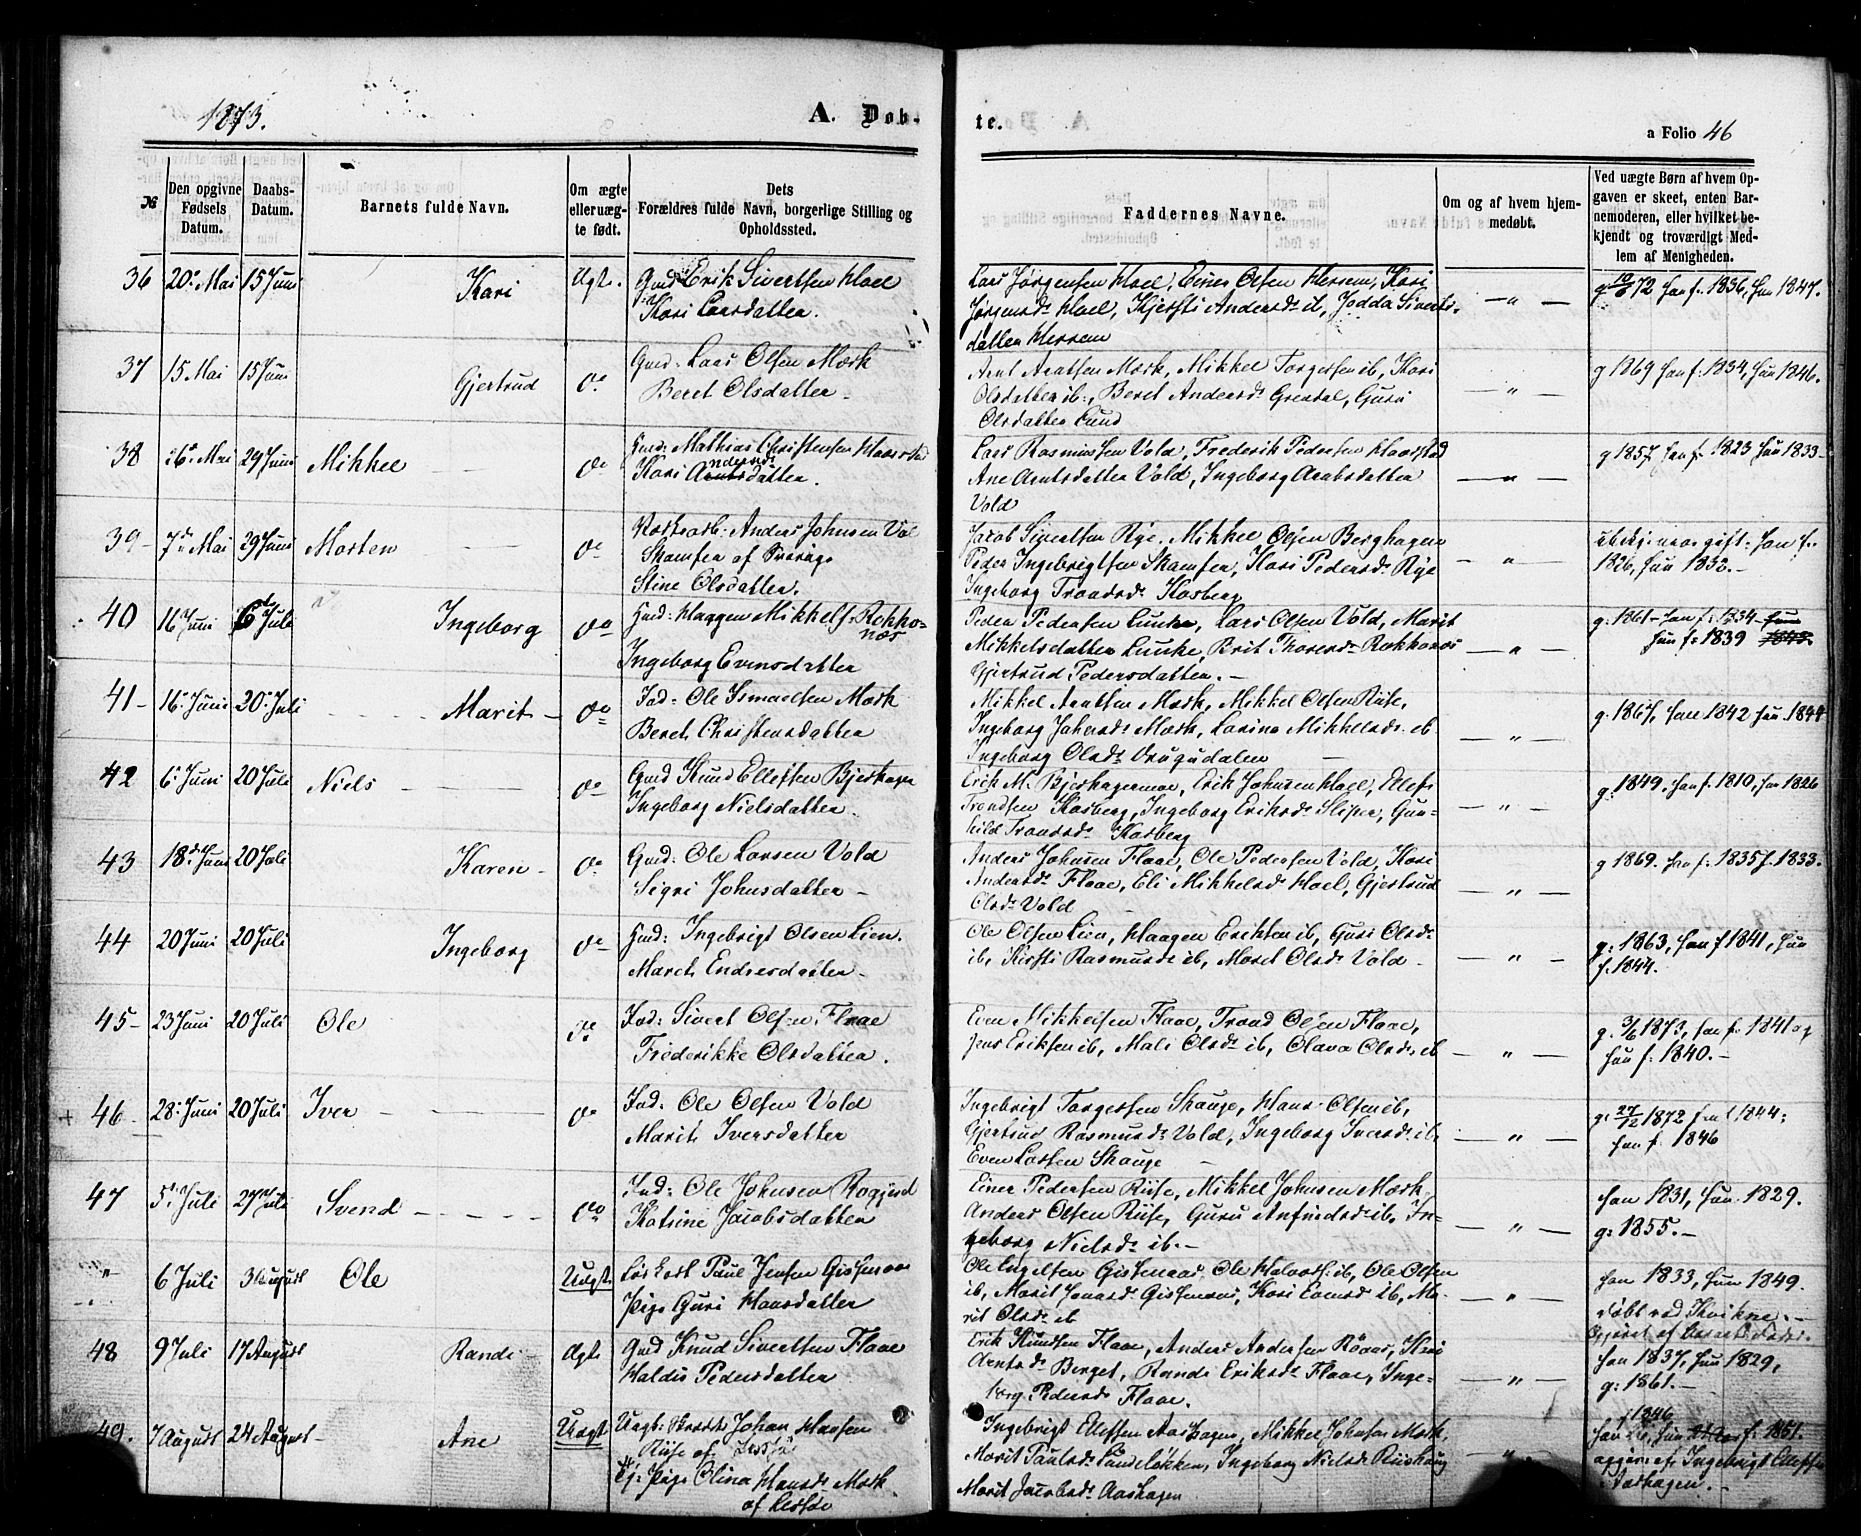 1873.
A. Døb-
te.
a Folio 46
№
Den opgivne Fødsels Datum.
Daabs-Datum.
Barnets fulde Navn.
Om ægte eller uæg-te født.
Dets Forældres fulde Navn, borgerlige Stilling og Opholdssted.
Faddernes Navne.
Om og af hvem hjem-medøbt.
Ved uægte Børn af hvem Op-gaven er skeet, enten Bar-nemoderen, eller hvilket be-kjendt og troværdigt Med-lem af Menigheden.
36 20de Mai 15 Juni Kari Ægt. Gmd Erik Sivertsen Hoel
Kari Larsdatter.
Lars Jørgensen Hoel, Einer Olsen Merrem, Kari
Jørgensd: Hoel, Kjersti Andersd: ib, Jodda Siverts-
datter Merrem
— " —
g 10/6 72 han f. 1836, hun 1847.
37 15 Mai 15 Juni Gjertrud do Gmd: Lars Olsen Mærk
Beret Olsdatter –
Arnt Arntsen Mærk, Mikkel Torgersen ib, Kari
Olsdatter ib:, Beret Andersd: Grendal, Guru
Olsdatter Lund
— " —
g 1869 han f. 1834, hun 1846.
38 16de Mai 29 Juni Mikkel do Hmd: Mathias Christensen Haarstad
Kari Andersdatter.
Lars Rasmussen Vold, Frederik Pedersen Haarstad
Ane Arntsdatter Vold, Ingeborg Arntsdatter
Vold
— " —
g 1857 han f. 1823 hun 1833 –
39 – 7de Mai 29 Juni Morten do Anders Johnsen Vol
Skamfer af
Stine Olsdatter.
Jacob Sivertsen Rye, Mikkel Olsen Berghagen
Peder Ingebrigtsen Skamfer, Kari Pedersd: Rye
Ingeborg Trondsd: Kosberg
— " —
gift: han f.
1826, hun 1832. –
40 16 Juni 6 Juli Ingeborg do Hmd: Haagen Mikkels. Rokko-
næs
Ingeborg Evensdatter
Peder Pedersen Lunke, Lars Olsen Vold, Marit
Mikkelsdatter Lunke, Brit Thoresd: Rokkonæs
Gjertrud Pedersdatter. –
— " —
g: 1861 – han f. 1834 – hun
hun f. 1839 1843.
41 – 16 Juni 20 Juli Marit – do Ind: Ole Ismaelsen Mærk
Beret Christensdatter
Mikkel Arntsen Mærk, Mikkel Olsen Riise,
Ingeborg Johnsd: Mærk, Larina Mikkelsd: ib
Ingeborg Olsd: Drugudalen
— " —
g. 1867, han 1842 hun 1844
42 6 Juni 20 Juli Niels do Gmd Knud Ellefsen Bjerhagen
Ingeborg Nielsdatter.
Erik M. Bjerhagermoe, Erik Johnsen Hoel, Ellef
Trondsen Kosberg, Ingeborg Eriksd: Sliper, Gun-
hild Trondsd: Kosberg
— " —
g: 1849. han f. 1810, hun 1826
43 18de Juni 20 Juli Karen – do Gmd: Ole Larsen Vold
Sigri Johnsdatter –
Anders Johnsen Flaae, Ole Pedersen Vold, Kari
Andersd: Flaae, Eli Mikkelsd Hoel, Gjertrud
Olsd: Vold
— " —
g 1869. han f. 1835 f. 1833.
44 20 Juni 20 Juli Ingeborg do Hmd: Ingebrigt Olsen Lien.
Marit Endresdatter –
Ole Olsen Lien, Haagen Eriksen ib, Guri Olsd:
ib, Kirsti Rasmusd: ib, Marit Olsd: Vold –
— " —
g: 1863, han f 1841, hun
f. 1844.
45 – 23 Juni 20 Juli Ole do Ind: Sivert Olsen Flaae
Frederikke Olsdatter.
Even Mikkelsen Flaae, Trond Olsen Flaae,
Jens Eriksen ib, Mali Olsd: ib, Olava Olsd: ib
— " —
g. 3/6 1873, han f. 1841 og
hun f. 1840. –
46 28 Juni 20 Juli Iver – do Ind: Ole Olsen Vold
Marit Iversdatter
Ingebrigt Torgersen Skauge, Hans Olsen ib,
Gjertrud Rasmusd: Vold, Ingeborg Iversd: ib,
Even Larsen Skauge
— " —
g. 27/12 1872 han f 1844;
hun f. 1846
47 5de Juli 27 Juli Svend do Ind: Ole Johnsen
Katrine Jacobsdatter
Einer Pedersen Riise, Mikkel Johnsen Mærk
Anders Olsen Riise, Guru Anfindsd: ib, In-
geborg Nielsd: ib. –
— " —
han 1831, hun 1829.
g: 1855. –
" 6 Juli 3 August Ole Uægt. Paul Jensen
Pige Guri Hansdatter
Ole Olsen
ib, Marit Kari Evensd ib, Ma-
rit Olsd: ib
— " —
han 1833, hun 1849.
døbt ved Kvikne. –
48 9 Juli 17 August Randi – Ægt. Gmd Knud Sivertsen Flaae
Haldis Pedersdatter
Erik Knudsen Flaae, Anders Andersen Røaas, Kari
Arntsd: Berget, Randi Eriksd: Flaae, Inge-
borg Pedersd: Flaae.
— " —
han 1837, hun 1829,
g: 1861. –
49. 7 August 24 August Ane Uægt Johan Hansen
Riise af
Pige Olina Hansd: Mærk
af
Ingebrigt Ellefsen Aashagen, Mikkel Johnsen Mærk,
Marit Paulsd: Sundeløkken, Ingeborg Nielsd: Riishaug
Marit Jacobsd: Aashagen
"
f 1846
hun f. 1851.
Ingebrigt Ellefsen
Aashagen. –